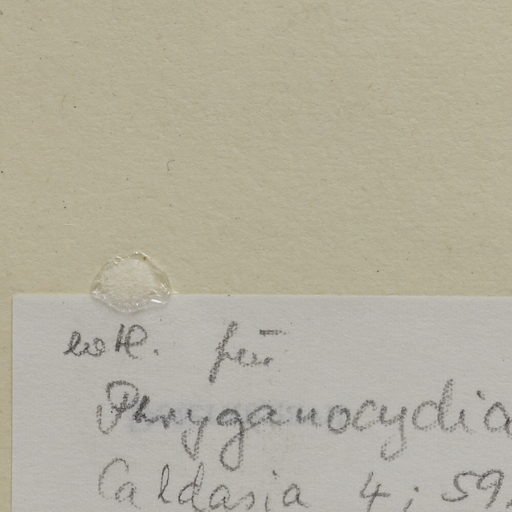 evtl. für
Phryganocydia
Caldasia 4; 59